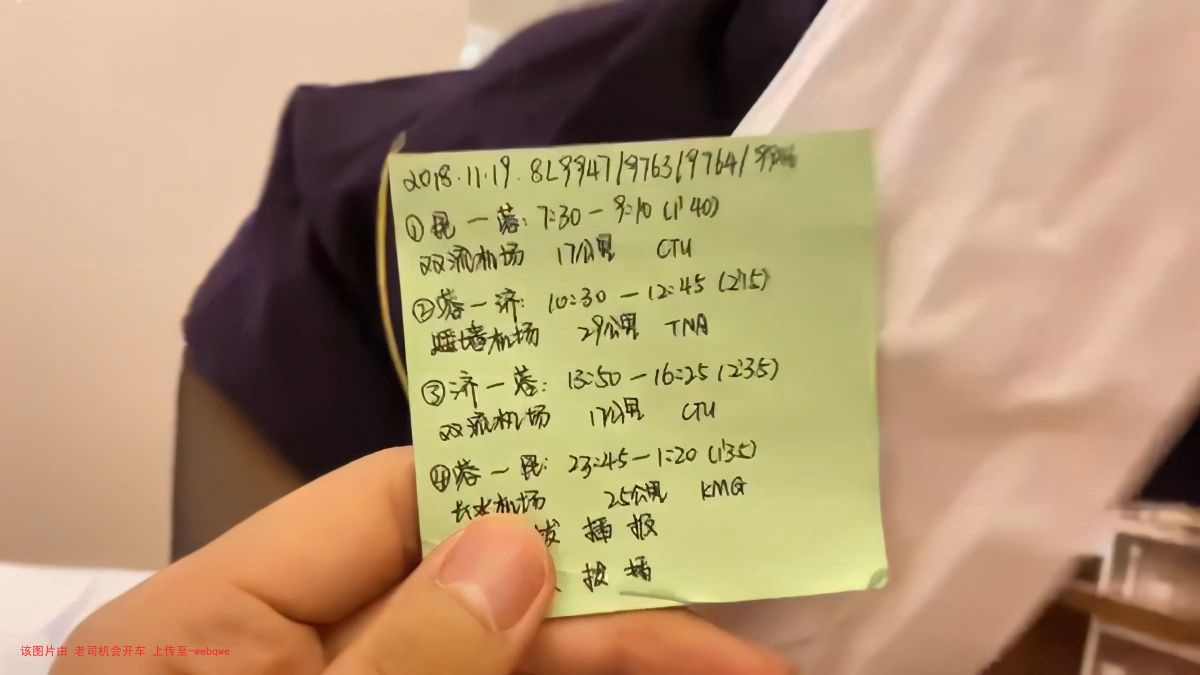 2018.11.19. 8L9947/9763/9764/
①昆一蓉: 7:30-9:10 (1'40)
双流机场 17公里 CTU
②蓉一济: 10:30-12:45 (2'15)
遥墙机场 29公里 TNA
③济一蓉: 13:50-16:25 (2'35)
双流机场 17公里 CTU
④蓉一昆: 23:45-1:20 (1'35)
长水机场 25公里 KMG
播报
播
该图片由 老司机会开车 上传至-webqwe